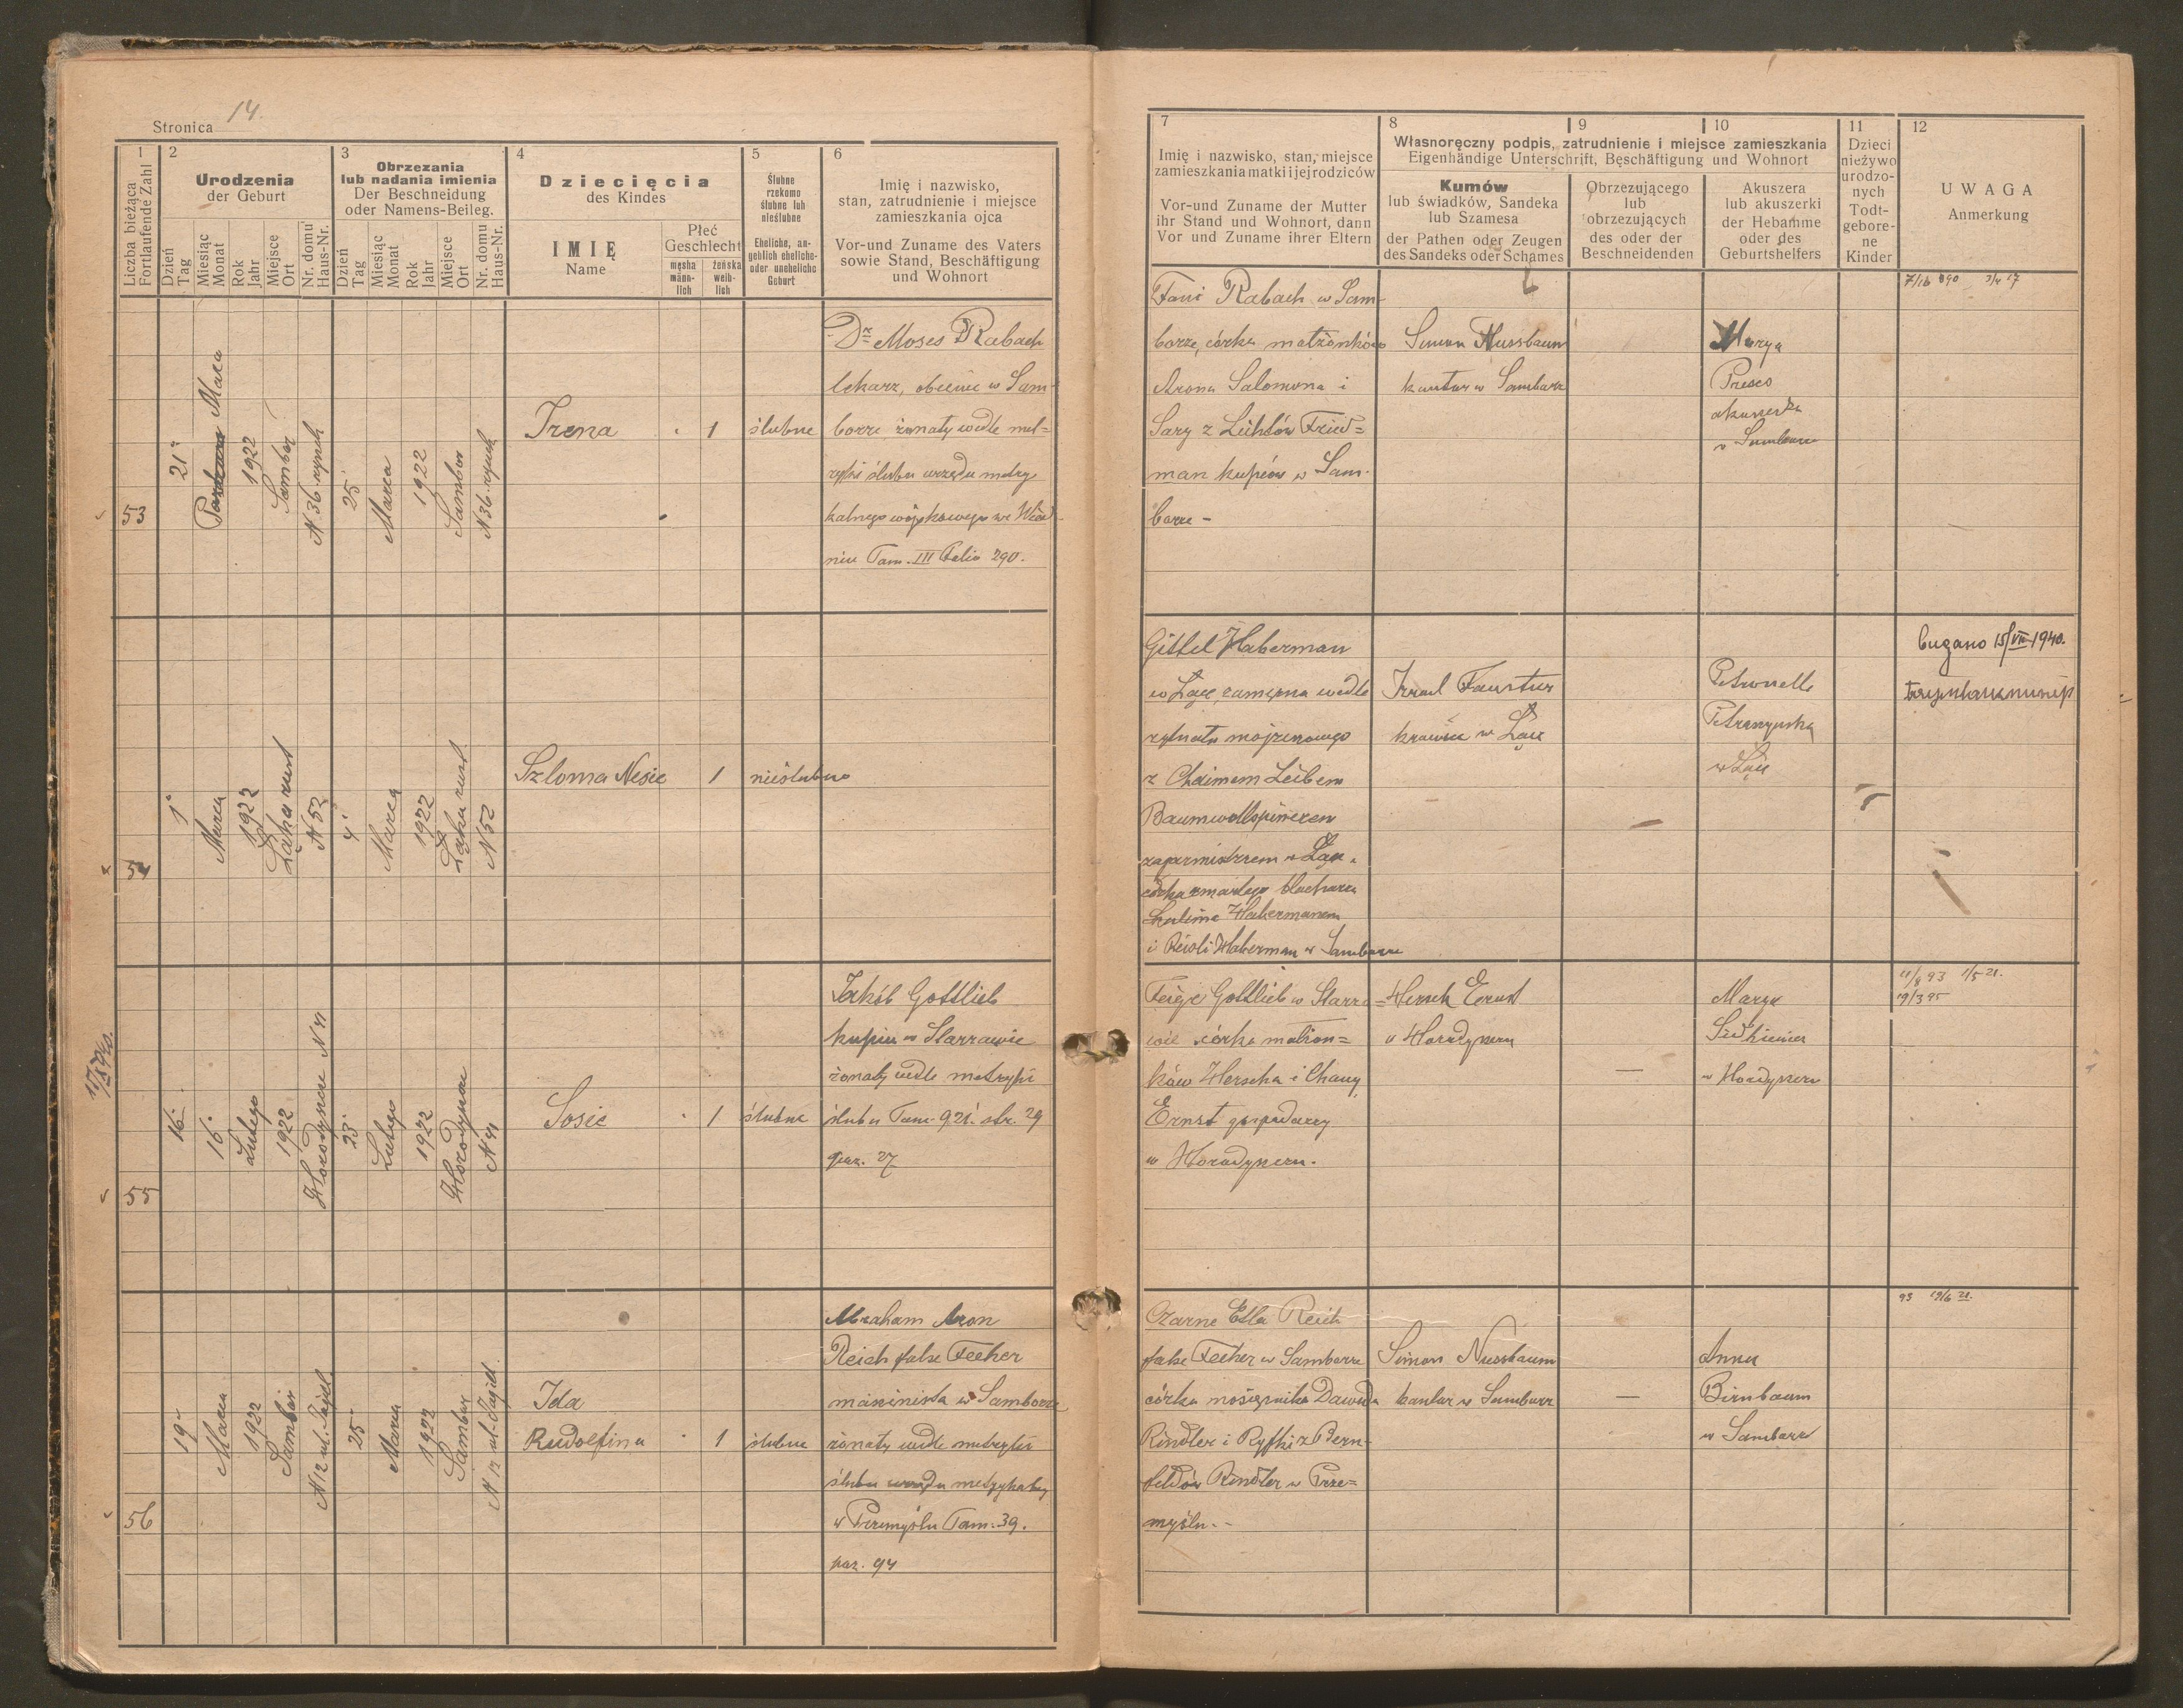 Stronica 14.
1
Liczba bieżąca
Fortlaufende Zahl
2
Urodzenia
der Geburt
Dzień
Tag
Miesiąc
Monat
Rok
Jahr
Miejsce
Ort
Nr. domu
Haus-Nr.
3
Obrzezania
lub nadania imienia
Der Beschneidung
oder Namens-Beileg.
Dzień
Tag
Miesiąc
Monat
Rok
Jahr
Miejsce
Ort
Nr. domu
Haus-Nr.
4
Dziecięcia
des Kindes
IMIĘ
Name
Płeć
Geschlecht
męska
männ-
lich
żeńska
weib-
lich
5
Ślubne
rzekomo
ślubne lub
nieślubne
Eheliche, an-
geblich eheliche-
oder uneheliche
Geburt
6
Imię i nazwisko,
stan, zatrudnienie i miejsce
zamieszkania ojca
Vor-und Zuname des Vaters
sowie Stand, Beschäftigung
und Wohnort
7
Imię i nazwisko, stan, miejsce
zamieszkania matki i jej rodziców
Vor-und Zuname der Mutter
ihr Stand und Wohnort, dann
Vor und Zuname ihrer Eltern
8
9
10
Własnoręczny podpis, zatrudnienie i miejsce zamieszkania
Eigenhändige Unterschrift, Beschäftigung und Wohnort
Kumów
lub świadków, Sandeka
lub Szamesa
der Pathen oder Zeugen
des Sandeks oder Schames
Obrzezującego
lub
obrzezujących
des oder der
Beschneidenden
Akuszera
lub akuszerki
der Hebamme
oder des
Geburtshelfers
11
Dzieci
nieżywo
urodzo-
nych
Todt-
gebore-
ne
Kinder
12
UWAGA
Anmerkung
53
21
Marca
1922
Sambor
N 36 rynek
25
Marca
1922
Sambor
N 36 rynek
Irena
1
ślubne
Dr Moses Rabach
lekarz, obecnie w Sam-
borze żonaty wedle met-
ryki ślubu urzędu metry
kalnego wojskowego we Wied-
niu Tom. III Folio 290.
Fani Rabach w Sam-
borze, córka małżonków
Arona Salomona i
Sary z Fried=
man kupców w Sam-
borze -
Simon Nussbaum
kantor w Samborze
Marya
akuszerka
w Samborze
7/16 890 3/4 17
54
1
Marca
1922
Łąka rust
N 52
4
Marca
1922
Łąka rust
N 52
Szloma Nesie
1
nieślubne
Gittel Haberman
w Łące, zamężna wedle
rytuału mojżeszowego
z Chaimem Leibem
zegarmistrzem w Łące
córka zmarłego blacharza
Habermanem
i Reisli Haberman w Samborze
Izrael Faustur
krawiec w Łące
w Łące
15/VII 1940.
55
16
16
Lutego
1922
Horodyszcze N 41
23
Lutego
1922
Horodyszcze
N 41
Sosie
1
ślubne
Jakób Gottlieb
kupiec w Starzawie
żonaty wedle metryki
ślubu Tom. 921. str. 29
poz. 27
Feige Gottlieb w Starza=
wie córka małżon=
ków Herscha i Chany
Ernst gospodarzy
w Horodyszczu.
Hersch Ernst
w Horodyszczu
Marya
w Horodyszczu
11/8 93 1/5 21.
19/3 95
56
19
Marca
1922
Sambor
N 12 ul. Jagiel.
25
Marca
1922
Sambor
N 12 ul. Jagiell.
Ida
Rudolfina
1
ślubne
Abraham Aron
Reich false Feiher
maszinista w Samborze
żonaty wedle metryki
ślubu urzędu metrykalnego
w Przemyślu Tom. 39.
poz. 94
Czarne Etla Reich
false Feiher w Samborze
córka Dawida
Rindler i Ryfki z Bern-
feldów Rindler w Prze=
myślu. -
Simon Nussbaum
kantor w Samborze
Anna
Birnbaum
w Samborze
93 19/6 21.